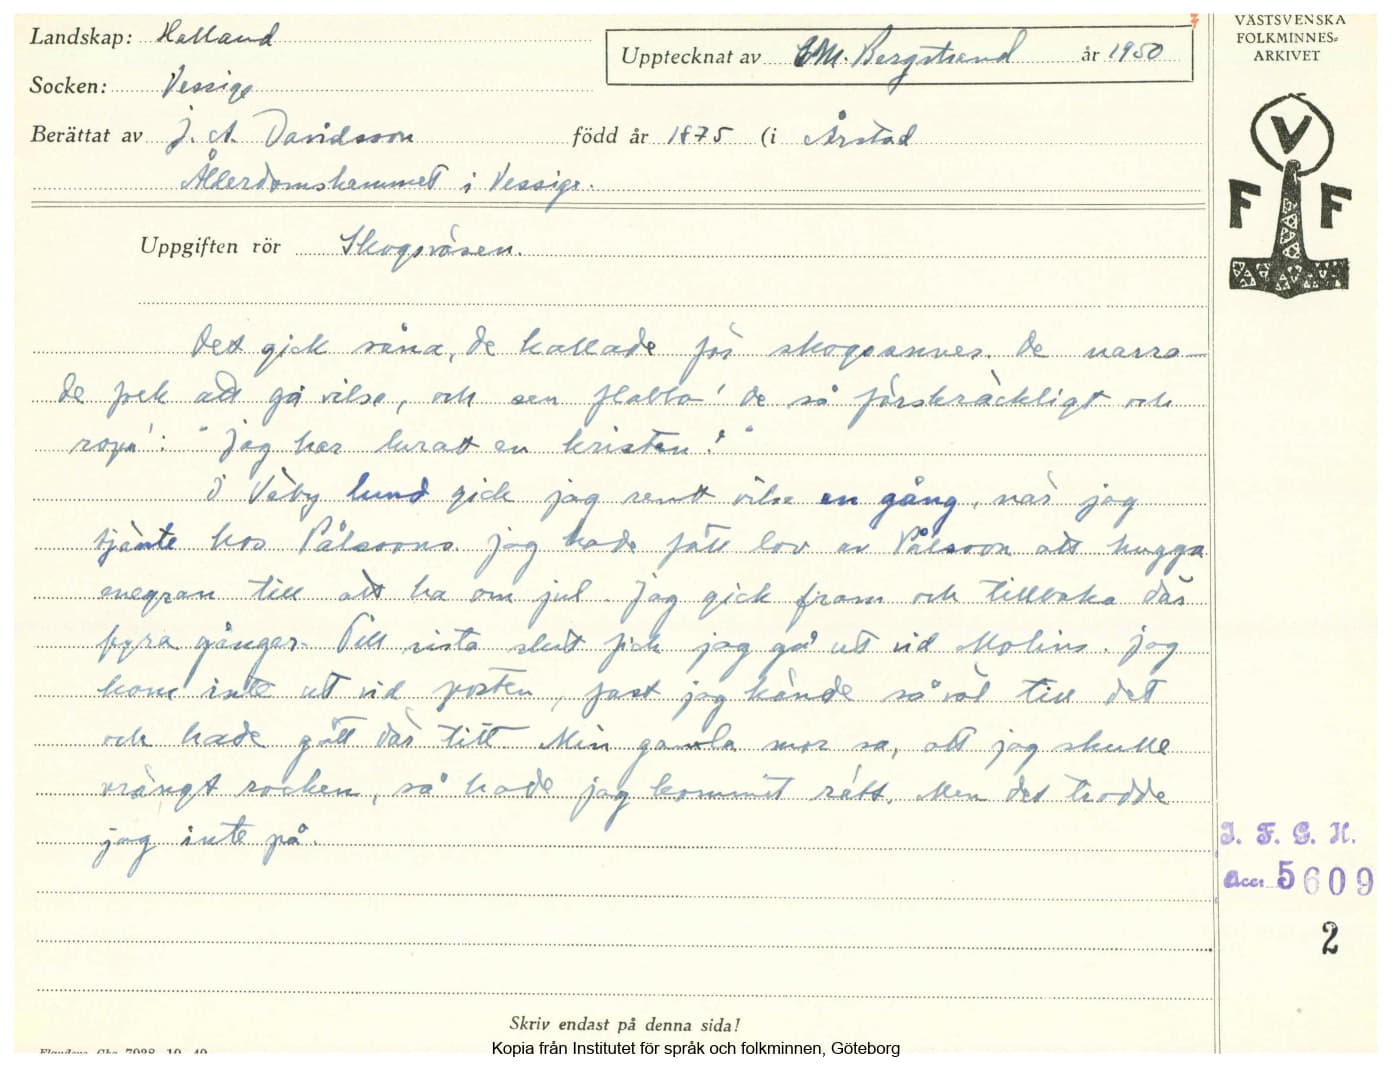 Landskap: Halland
Upptecknat av C.M. Bergstrand år 1950
VÄSTSVENSKA
FOLKMINNES-
ARKIVET
Socken: Vessige
Berättat av J. A. Davidsson född år 1875 (i Årstad
Ålderdomshemmet i Vessige.
V
F F
Uppgiften rör Skogsväsen.
Det gick såna, de kallade för skogsnuves. De narra-
de folk att gå vilse, och sen flabba' de så förskräckligt och
ropa': "Jag har lurat en kristen!"
I Väby lund gick jag rentt vilse en gång, när jag
tjänte hos Pålssons. Jag hade fått lov av Pålsson att hugga
enegran till att ha om jul. Jag gick fram och tillbaka där
fyra gånger. Till sista slut fick jag gå ut vid Molins. Jag
kom inte ut vid posten, fast jag kände så väl till det
och hade gått där titt. Min gamla mor sa, att jag skulle
vrängt rocken, så hade jag kommit rätt. Men det trodde
jag inte på.
I. F. G. H.
Acc: 5609
2
Skriv endast på denna sida!
Kopia från Institutet för språk och folkminnen, Göteborg